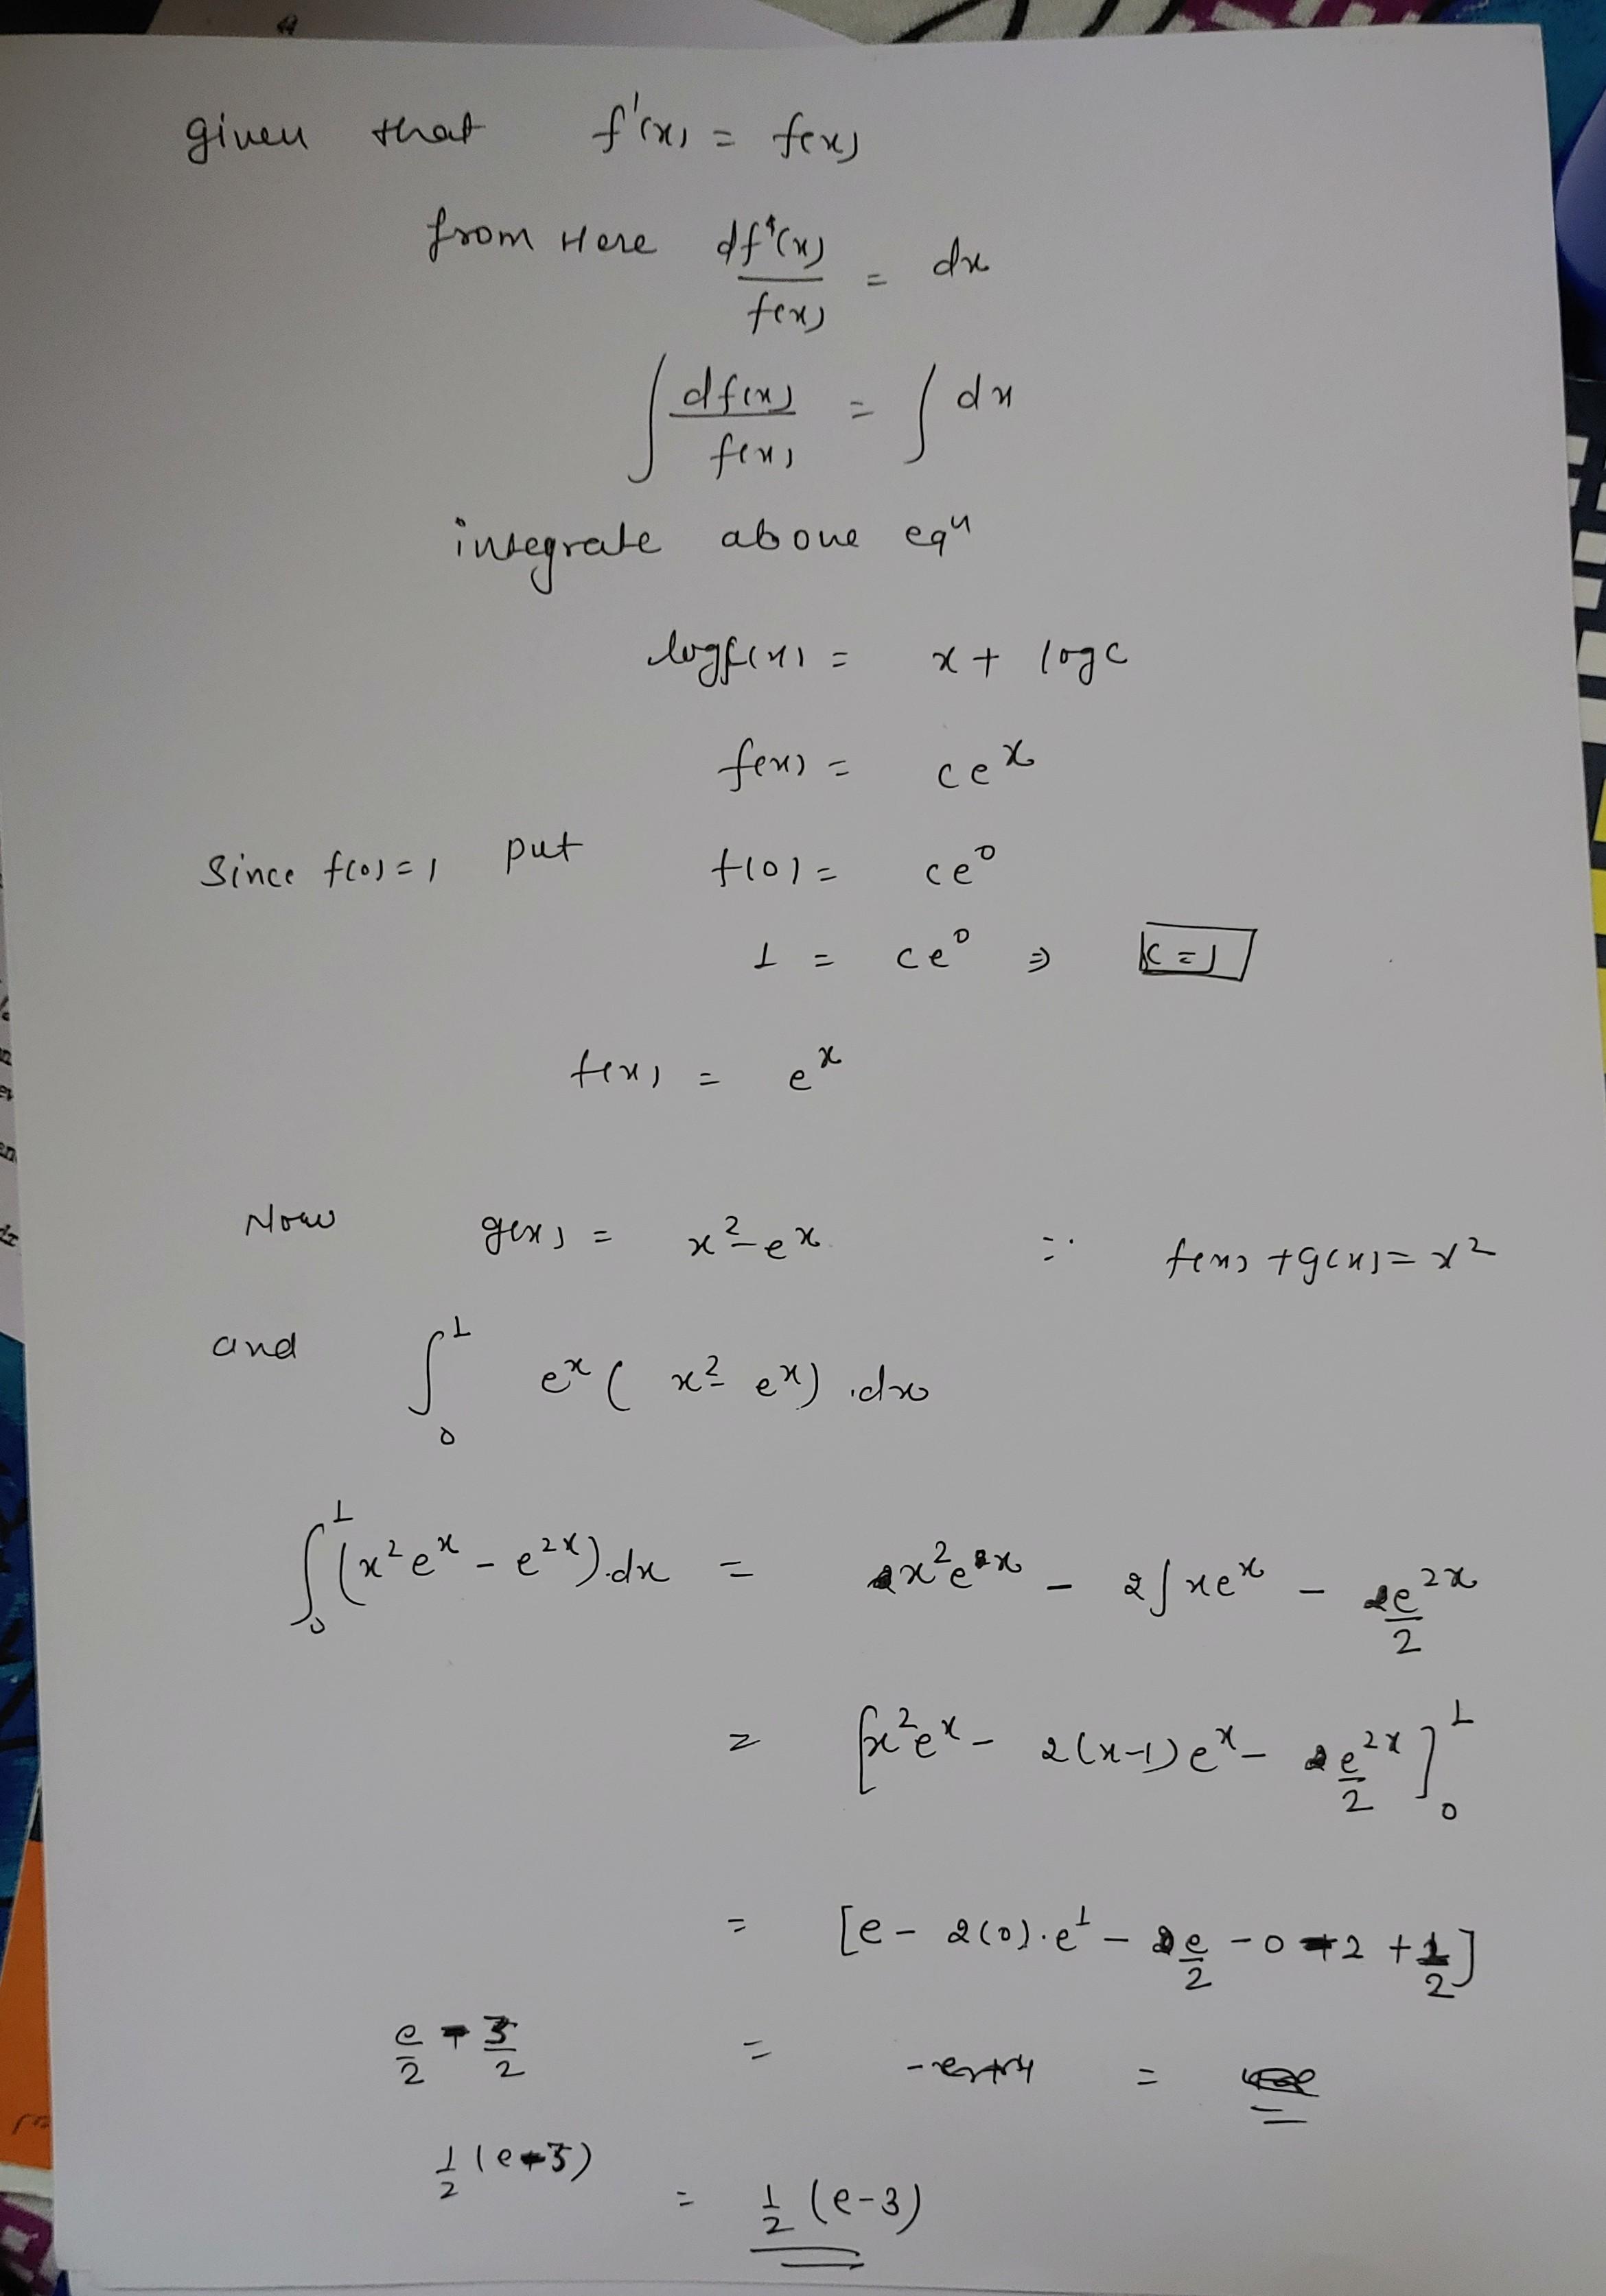 given that f'(x) = f(x)
from Here df(x)/f(x) = dx
∫ df(x)/f(x) = ∫ dx
integrate above eqn
log f(x) = x + log c
f(x) = c e^x
Since f(0) = 1 put f(0) = c e^0
1 = c e^0 ⇒ c = 1
f(x) = e^x
Now g(x) = x^2 - e^x ∵ f(x) + g(x) = x^2
and ∫_0^1 e^x ( x^2 - e^x ) .dx
∫_0^1 (x^2 e^x - e^2x).dx = x^2 e^x - 2∫xe^x - e^2x/2
= [x^2 e^x - 2(x-1)e^x - e^2x/2]_0^1
= [e - 2(0).e^1 - e/2 - 0 - 2 + 1/2]
e/2 - 3/2 = =
1/2 (e-3)
= 1/2 (e-3)